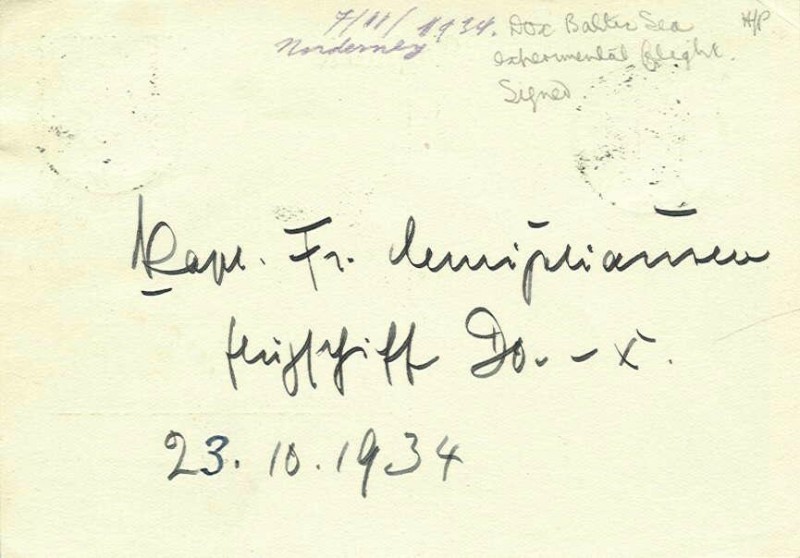 7/11/1934.
Norderney
Dox Baltic Sea
experimental flight.
Signed
Kapt. Fr. Christiansen
Flugschiff Do.-X.
23.10.1934